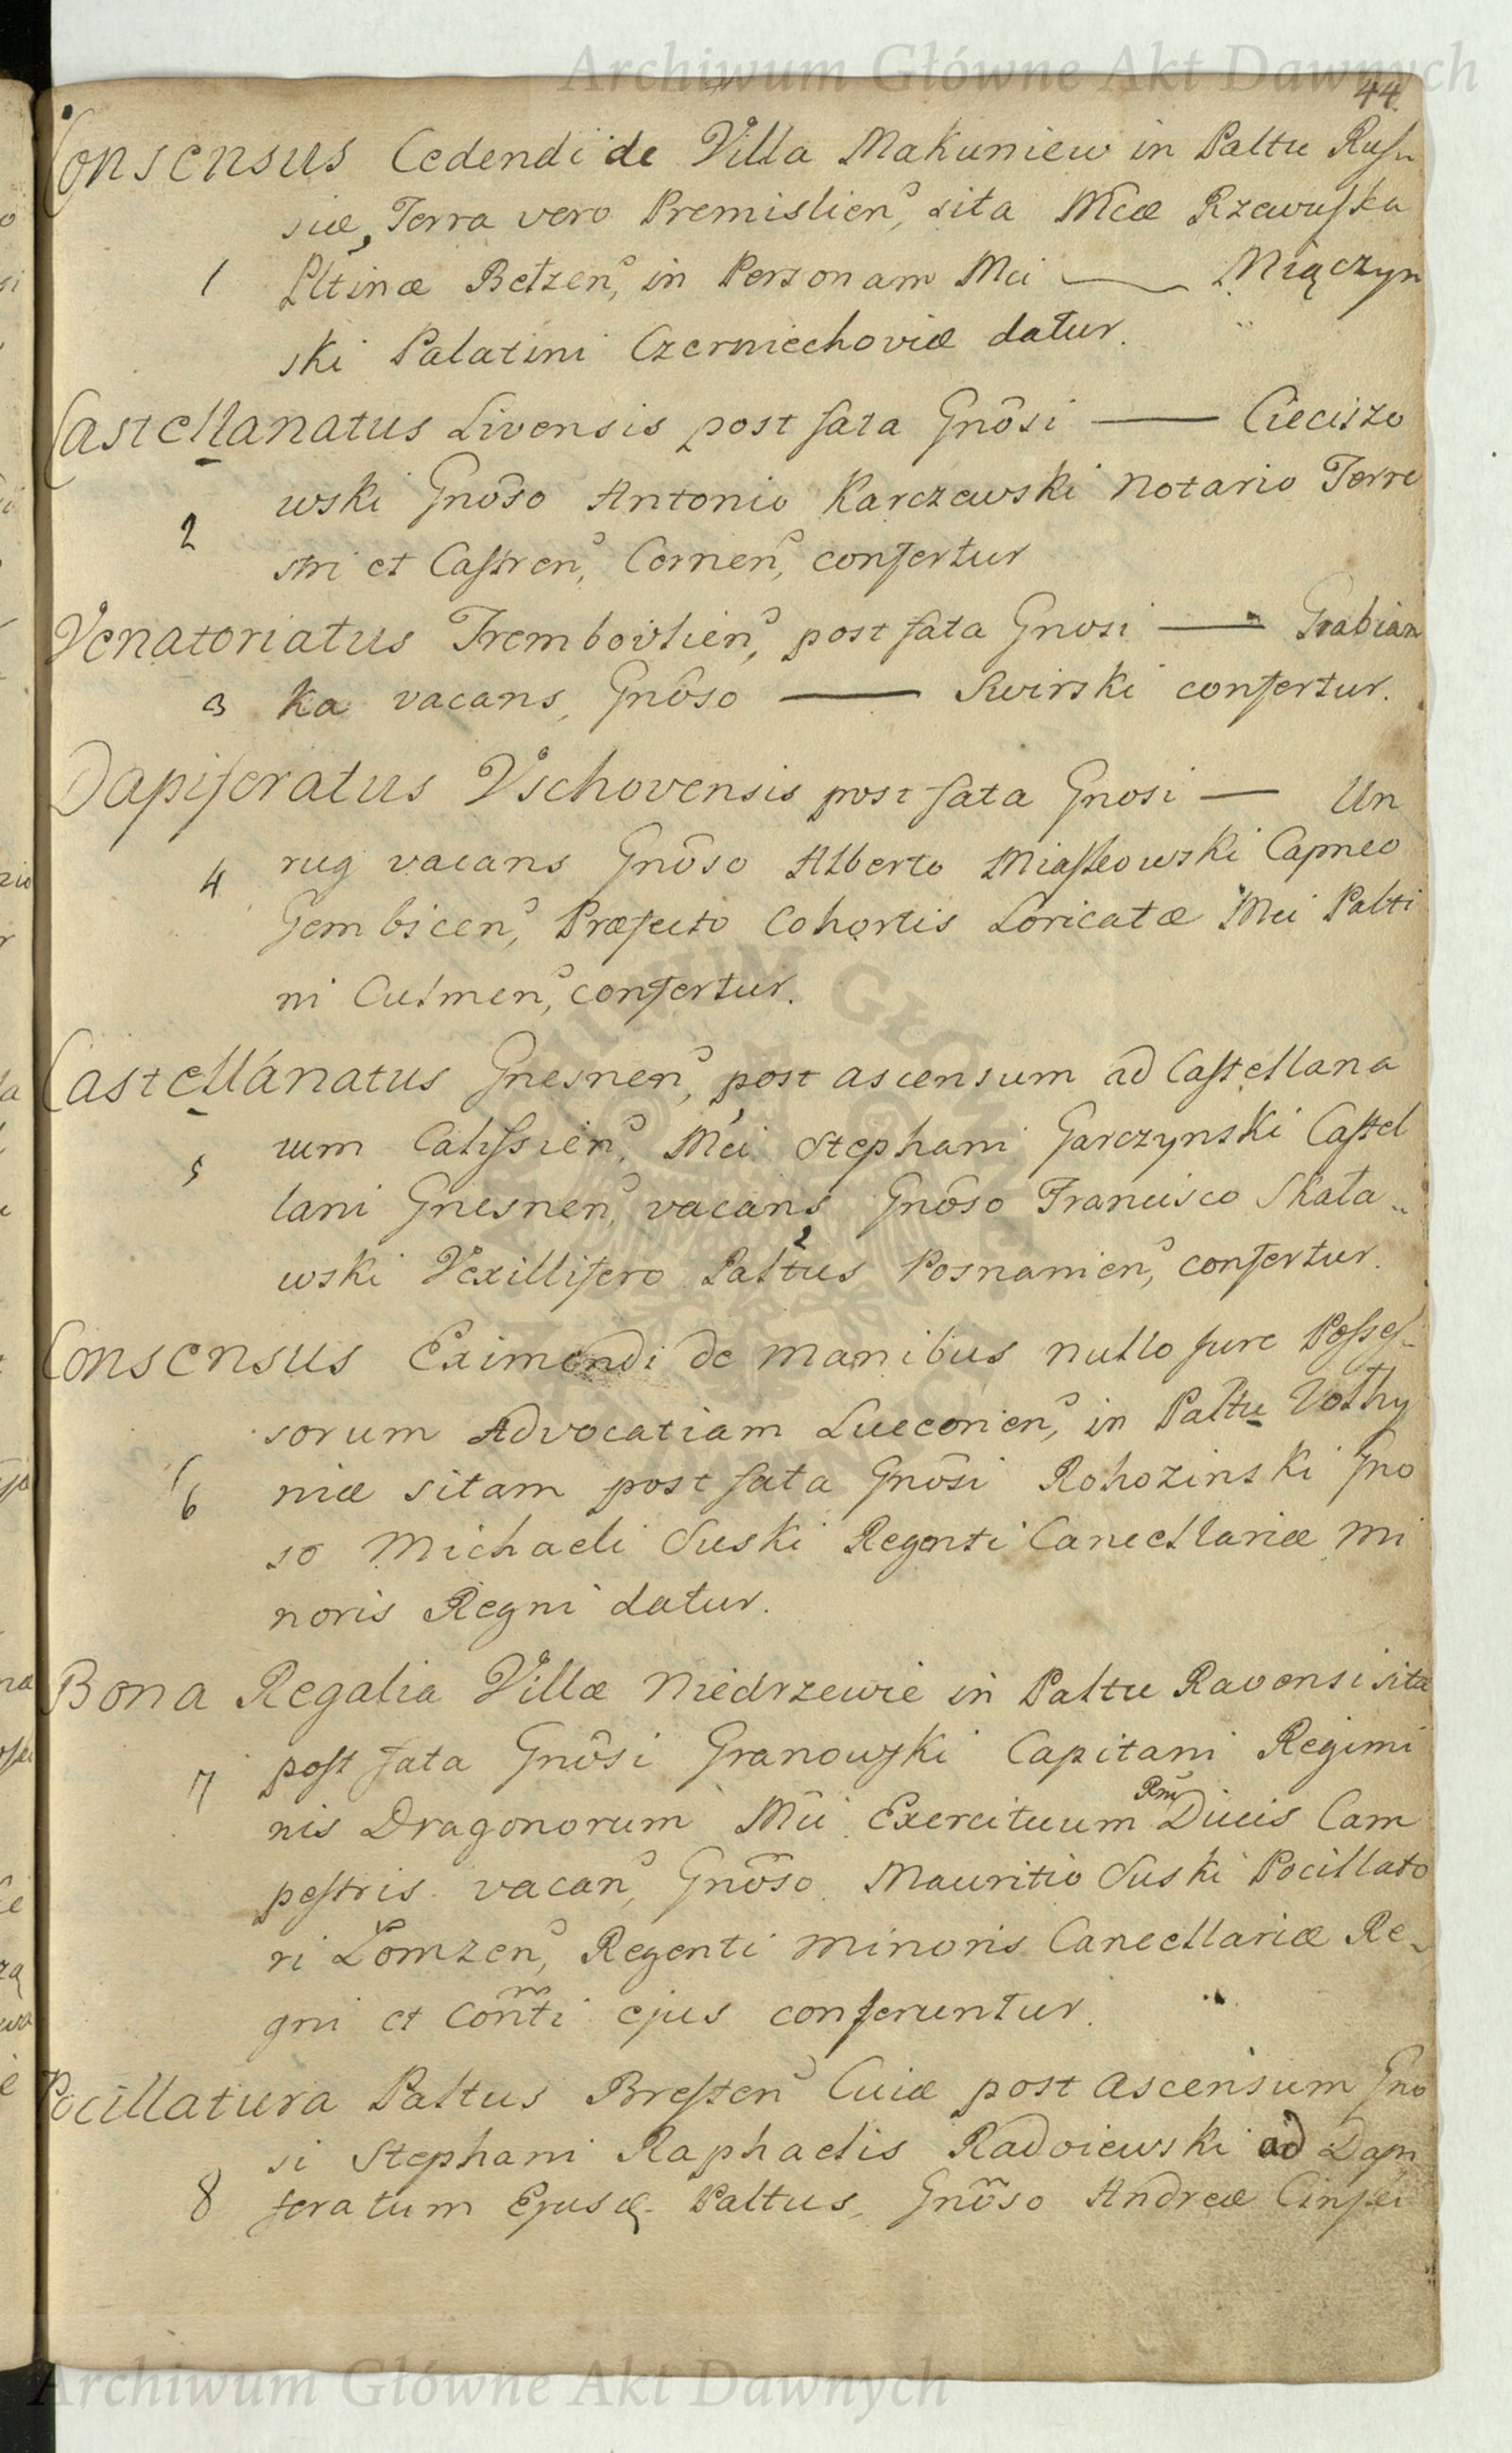 Archiwum Główne Akt Dawnych
44.
Consensus Cedendi de Villa Makuniew in Paltu Rus
siæ, Terra vero Premislien, sita Mcæ Rzewuska
1 Pltinæ Bełzen, in Personam Mci — Miączyn
ski Palatini Czerniechoviæ datur.
Castellanatus Livensis post fata Gnôsi — Cieciszo
wski Gnôso Antonio Karczewski Notario Terre
2
stri et Castren, Cernen, confertur
Venatoriatus Trembovlien, post fata Gnosi — Grabian
3 ka vacans, Gnôso — Swirski confertur.
Dapiferatus Vschovensis post fata Gnosi — Un
4 rug vacans Gnôso Alberto Miaskowski Capneo
Gembicen, Præfecto Cohortis Loricatæ Mci Palti
ni Culmen, confertur.
Castellanatus Gnesnen, post ascensum ad Castellana
5 tum Calissien, Mci Stephani Garczynski Castel
lani Gnesnen, vacans Gnôso Francisco Skała
wski Vexillifero Paltus Posnanien, confertur.
Consensus Eximendi de manibus nullo jure Posses
sorum Advocatiam Lueconien, in Paltu Volhy
6 niæ sitam post fata Gnôsi Rohozinski Gno
so Michaeli Suski Regenti Cancellariæ Mi
noris Regni datur.
Bona Regalia Villæ Niedrzewie in Paltu Ravensi sita
7 post fata Gnôsi Granowski Capitani Regimi
nis Dragonorum Mci Exercituum Rni Ducis Cam
pestris vacan, Gnôso Mauritio Suski Pocillato
ri Łomzen, Regenti Minoris Cancellariæ Re
gni et Conti ejus conferuntur.
Pocillatura Paltus Bresten Cuiæ post ascensum Gno
si Stephani Raphaelis Radoiewski ad Dapi
8 feratum Ejusd. Paltus, Gnôso Andreæ
Archiwum Główne Akt Dawnych